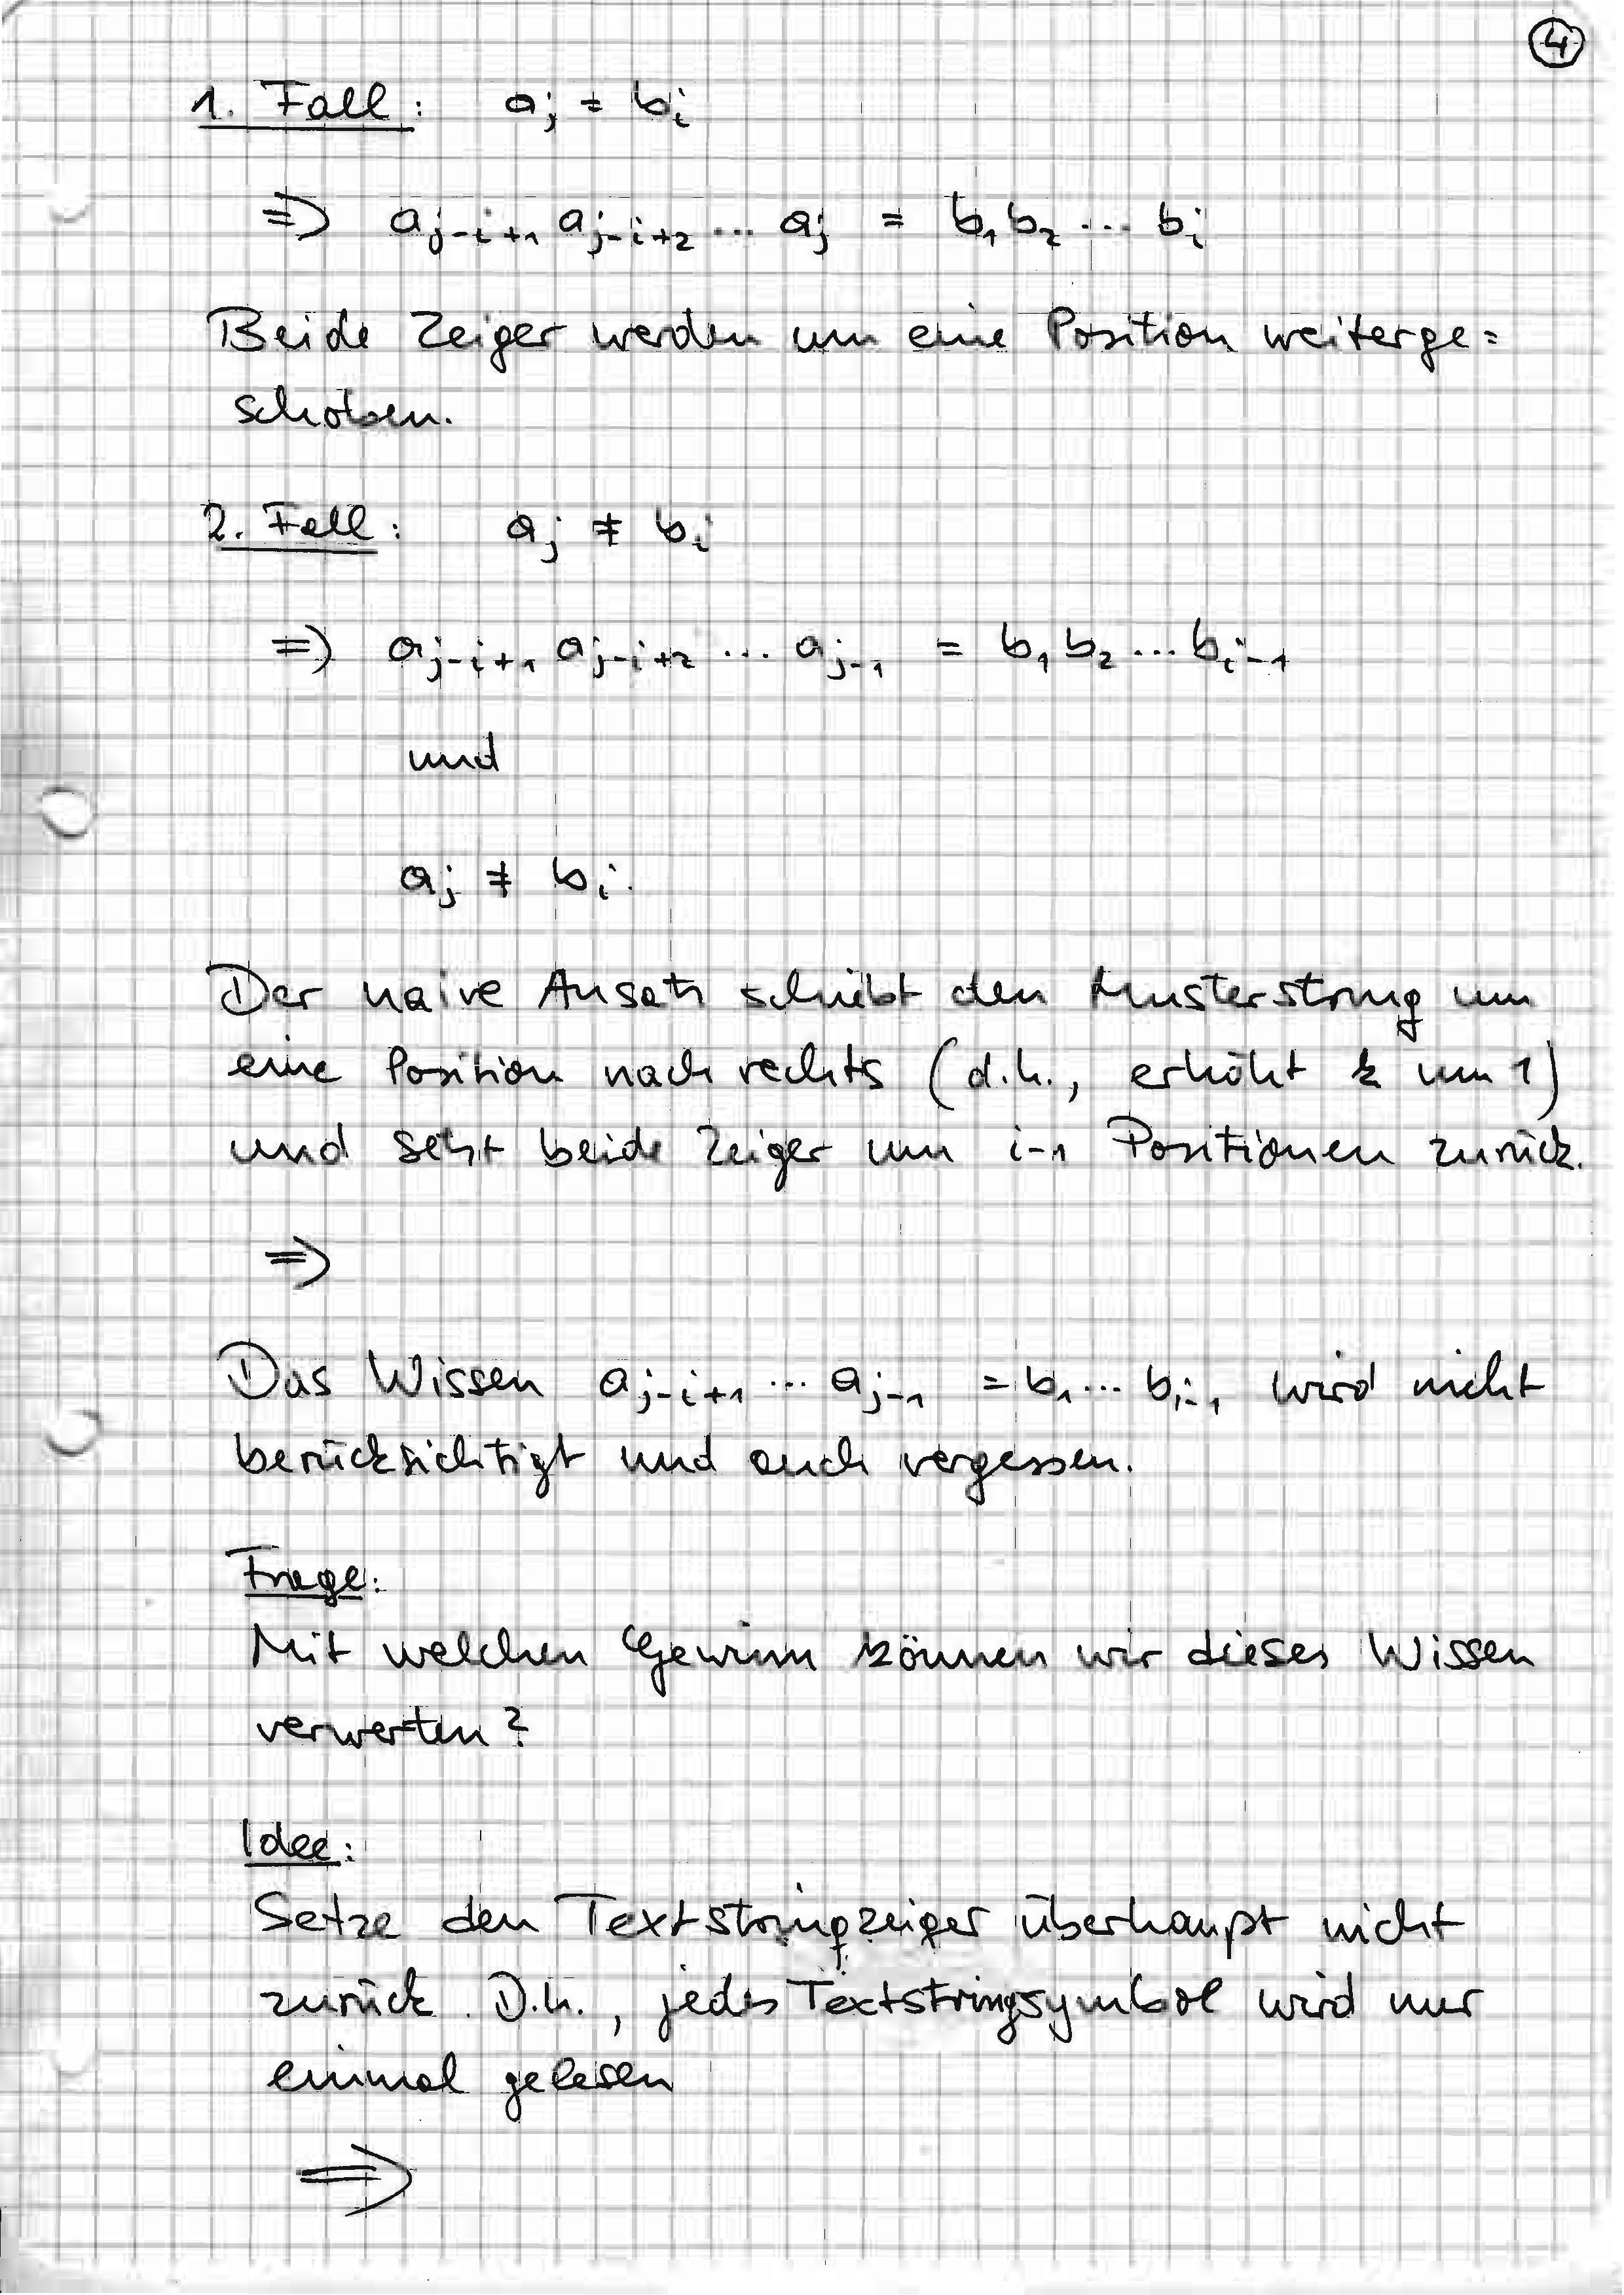 4
1. Fall: a_j = b_i
⇒ a_{j-i+1} a_{j-i+2} ... a_j = b_1 b_2 ... b_i
Beide Zeiger werden um eine Position weiterge=
schoben.
2. Fall: a_j ≠ b_i
⇒ a_{j-i+1} a_{j-i+2} ... a_{j-1} = b_1 b_2 ... b_{i-1}
und
a_j ≠ b_i.
Der naive Ansatz schiebt den Musterstring um
eine Position nach rechts (d.h., erhöht k um 1)
und setzt beide Zeiger um i-1 Positionen zurück.
⇒
Das Wissen a_{j-i+1} ... a_{j-1} = b_1 ... b_{i-1} wird nicht
berücksichtigt und auch vergessen.
Frage:
Mit welchen Gewinn können wir dieses Wissen
verwerten?
Idee:
Setze den Textstringzeiger überhaupt nicht
zurück. D.h., jedes Textstringsymbol wird nur
einmal gelesen
⇒